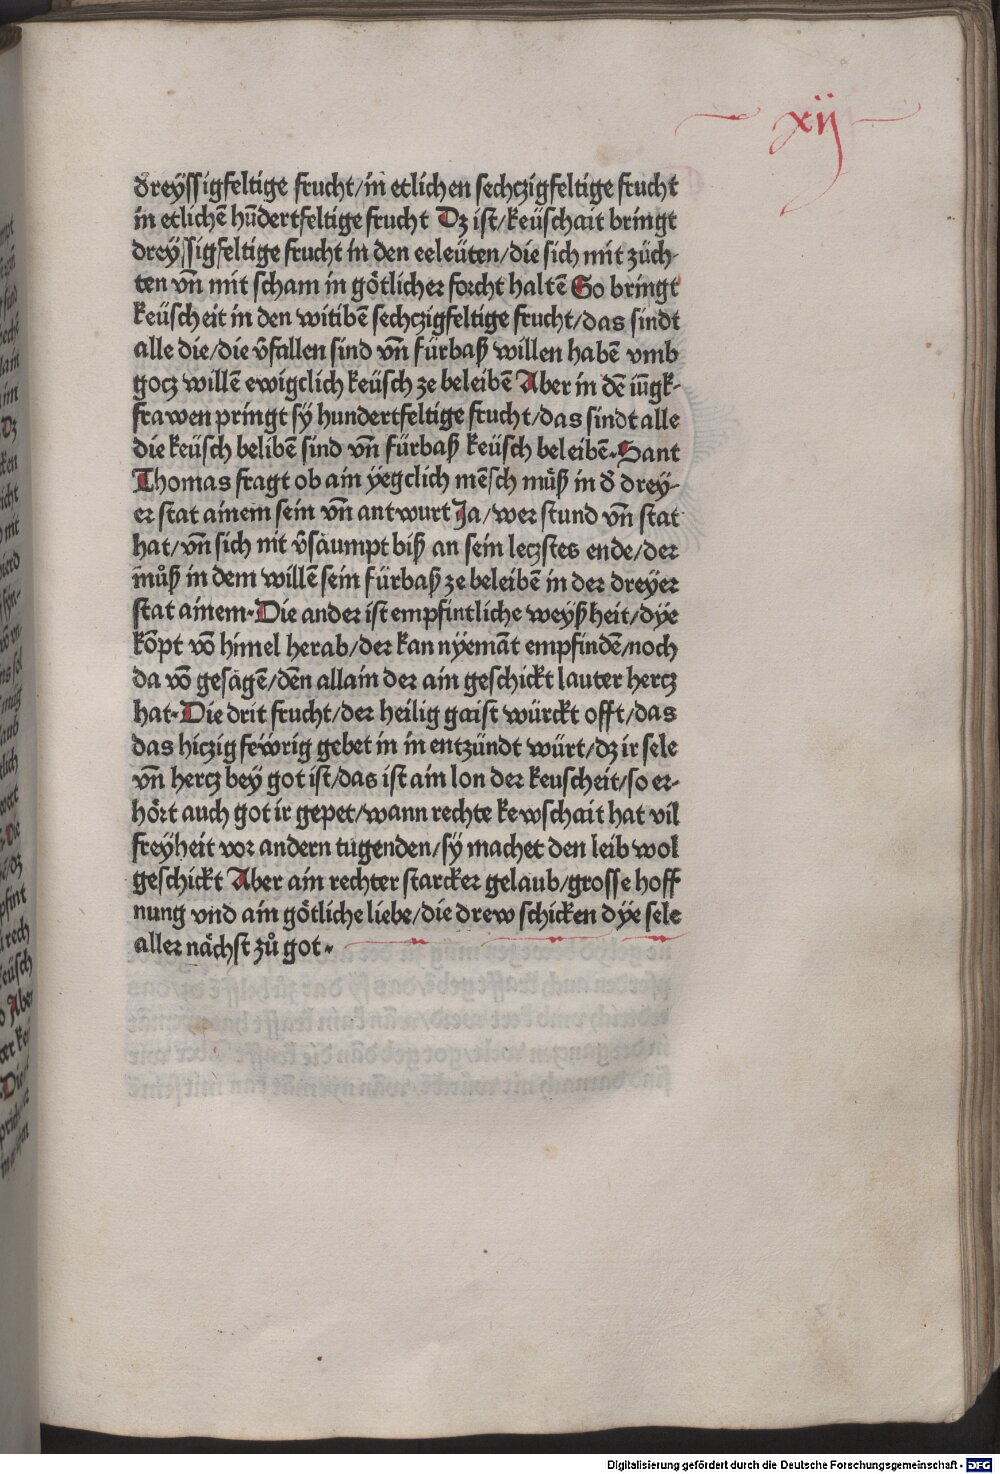 xij
dreyssigfeltige frucht/in etlichen sechczigfeltige frucht
in etlichē hūdertfeltige frucht Dz ist/keüschait bringt
dreyssigfeltige frucht in den eeleüten/die sich mit züch-
ten vn̄ mit scham in gŏtlicher forcht haltē So bringt
keüscheit in den witibē sechczigfeltige frucht/das sindt
alle die/die v̄fallen sind vn̄ fürbaß willen habē vmb
gocz willē ewigclich keüsch ze beleibē Aber in dē iūgk-
frawen pringt sy̆ hundertfeltige frucht/das sindt alle
die keüsch belibē sind vn̄ fürbaß keüsch beleibē. Sant
Thomas fragt ob ain yegclich mēsch můß in d̄ drey-
er stat ainem sein vn̄ antwurt Ja/wer stund vn̄ stat
hat/vn̄ sich nit v̄säumpt biß an sein leczstes ende/der
můß in dem willē sein fürbaß ze beleibē in der dreyer
stat ainem. Die ander ist empfintliche weyßheit/dye
kōpt vō himel herab/der kan nyemāt empfindē/noch
da vō gesägē/dēn allain der ain geschickt lauter hercz
hat. Die drit frucht/der heilig gaist würckt offt/das
das hiczig feẅrig gebet in in entzündt würt/dz ir sele
vn̄ hercz bey got ist/das ist ain lon der keuscheit/so er-
hŏrt auch got ir gepet/wann rechte kewschait hat vil
freyheit vor andern tugenden/sy̆ machet den leib wol
geschickt Aber ain rechter starcker gelaub/grosse hoff
nung vnd ain gŏtliche liebe/die drew schicken dye sele
aller nächst zů got.
Digitalisierung gefördert durch die Deutsche Forschungsgemeinschaft - DFG